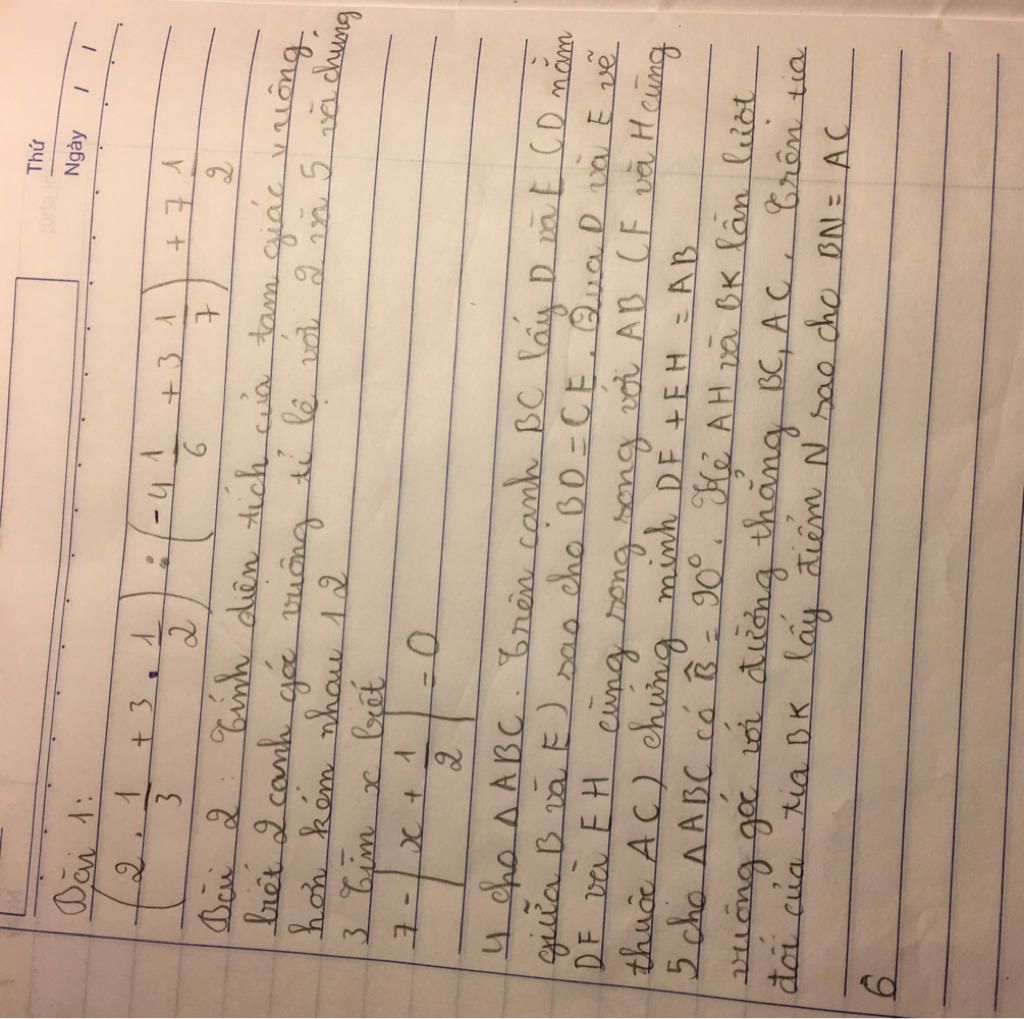 Thứ
Ngày / /
Bài 1:
(2 . 1/3 + 3 . 1/2) : (-4 1/6 + 3 1/7) + 7 1/2
Bài 2: Tính diện tích của tam giác vuông
biết 2 cạnh góc vuông tỉ lệ với 2 và 5 và chúng
hơn kém nhau 12
3 Tìm x biết
7 - |x + 1/2| = 0
4 cho Δ ABC. Trên cạnh BC lấy D và E (D nằm
giữa B và E) sao cho BD = CE. Qua D và E vẽ
DF và EH cùng song song với AB (F và H cùng
thuộc AC) chứng minh DF + EH = AB
5 cho Δ ABC có B̂ = 90°. Kẻ AH và BK lần lượt
vuông góc với đường thẳng BC, AC. Trên tia
đối của tia BK lấy điểm N sao cho BN = AC
6